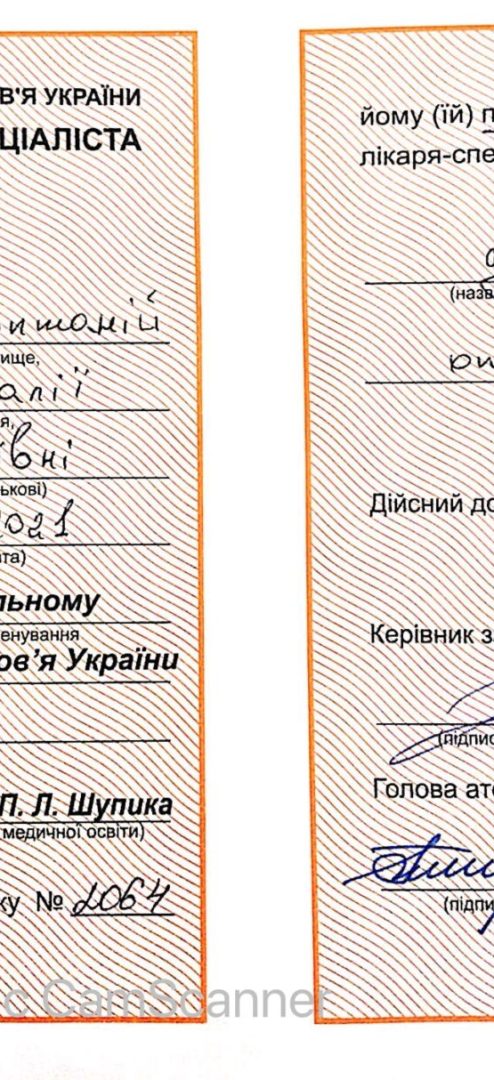 В'Я УКРАЇНИ
ЦІАЛІСТА
ище,
алії
я,
вні
ькові)
2021
та)
льному
енування
ов'я України
П. Л. Шупика
медичної освіти)
ку № 2064
йому (їй) п
лікаря-спе
(назв
Дійсний до
Керівник з
(підпис
Голова ате
(підпи
с CamScanner